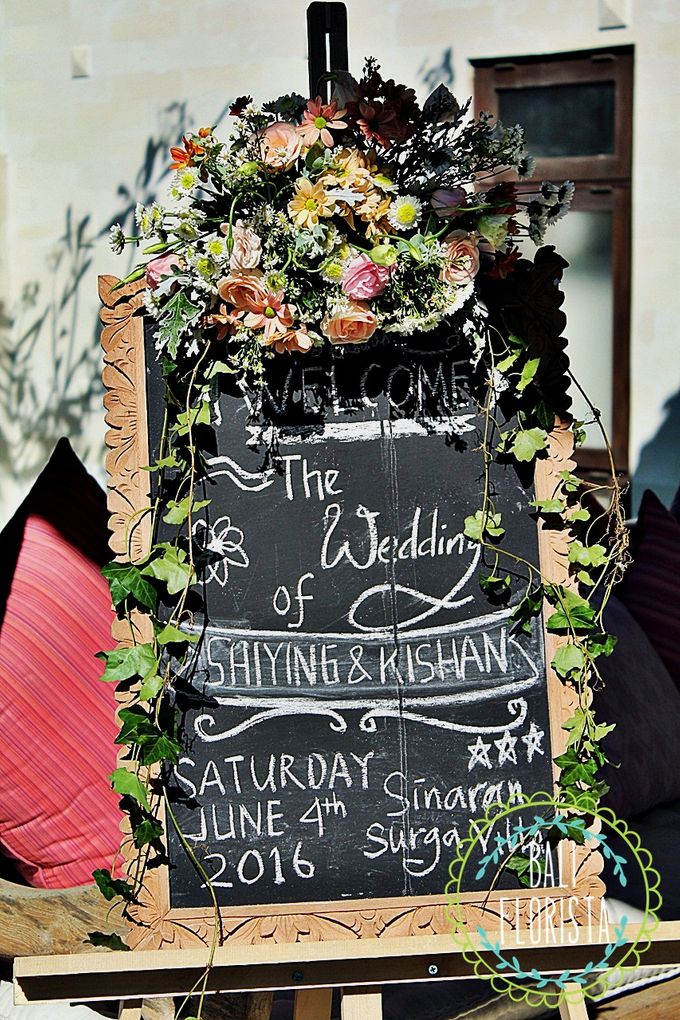 WELCOME
The
Wedding
of
SAIYING & KISHAN
SATURDAY
JUNE 4th
2016
Sinaran
Surga Villa
BALI
FLORISTA